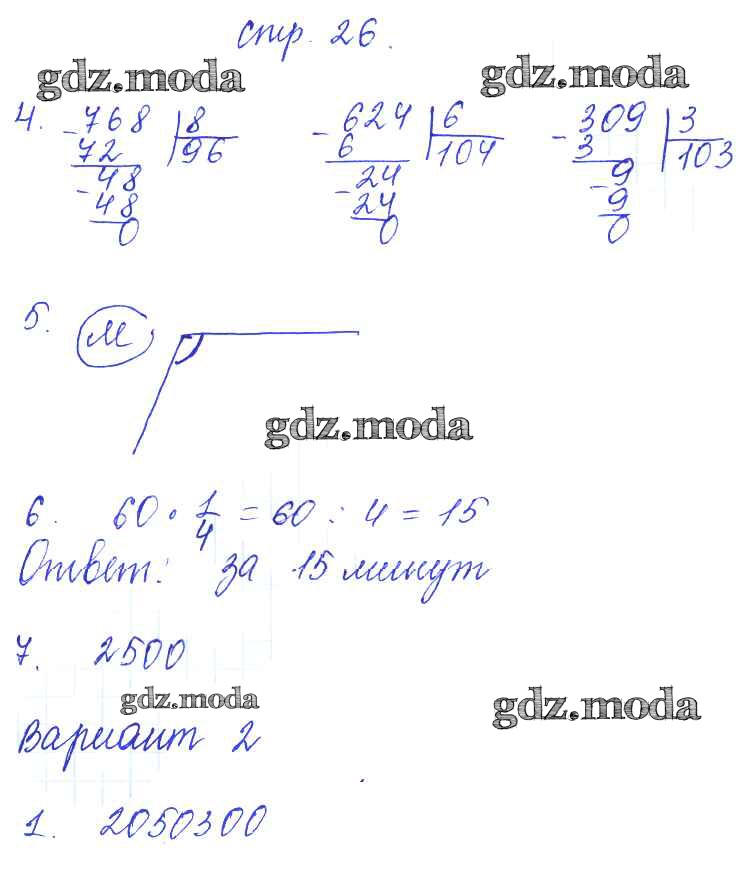 стр. 26.
gdz.moda gdz.moda
4. -768 | 8 -624 | 6 -309 | 3
72 96 6 104 3 103
-48 -24 -9
48 24 9
0 0 0
5. М
gdz.moda
6. 60 · 1/4 = 60 : 4 = 15
Ответ: за 15 минут
7. 2500
gdz.moda gdz.moda
Вариант 2
1. 2050300